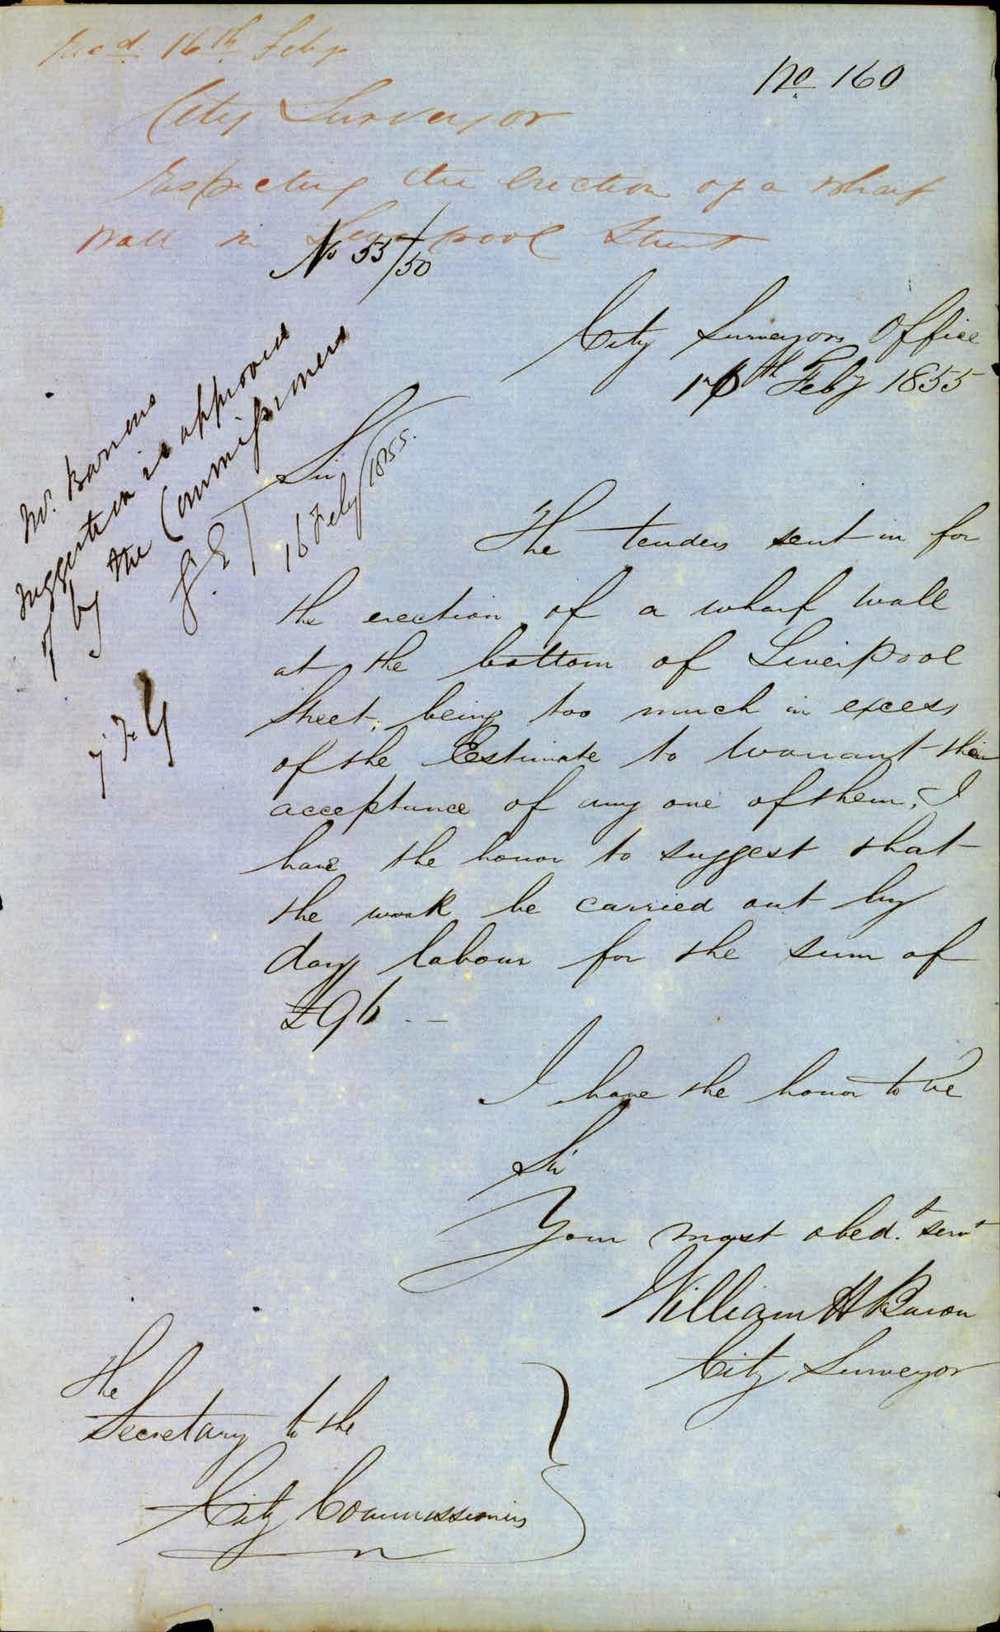 Recd. 16th Feby
No 160
City Surveyor
Respecting the erection of a wharf
Wall in Liverpool Street
No 55/50
City Surveyors Office
16th Feby 1855
Mr. Barons
suggestion is approved
of by the Commissioners
16 Feby/1855.
Sir
The tenders sent in for
the erection of a wharf wall
at the bottom of Liverpool
Street, being too much in excess
of the Estimate to warrant their
acceptance of any one of them, I
have the honor to suggest that
the work be carried out by
day labour for the sum of
£96 --
I have the honor to be
Sir
Your most obedt. servt
William H Baron
City Surveyor
The
Secretary to the
City Commissioners